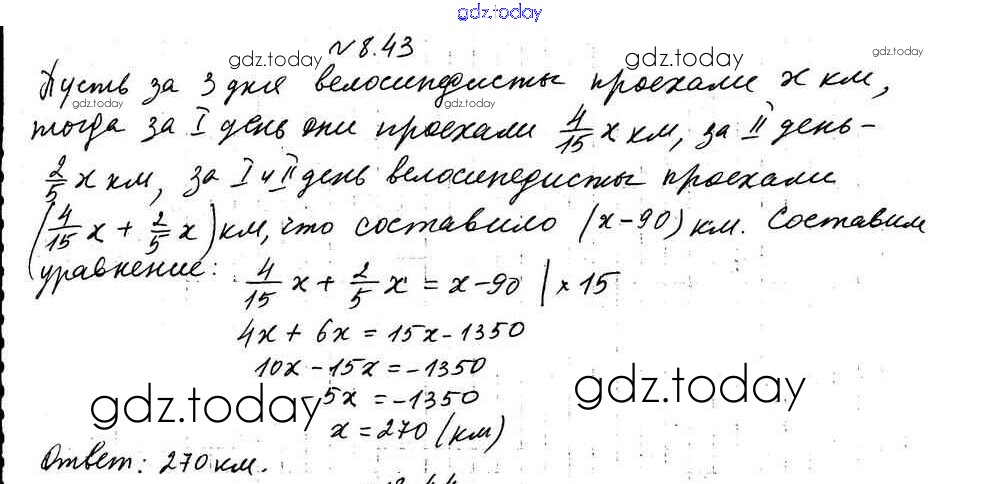 gdz.today
№ 8.43
gdz.today gdz.today gdz.today
Пусть за 3 дня велосипедисты проехали x км,
gdz.today gdz.today
тогда за I день они проехали 4/15 x км, за II день -
2/5 x км, за I и II день велосипедисты проехали
(4/15 x + 2/5 x) км, что составило (x - 90) км. Составим
уравнение: 4/15 x + 2/5 x = x - 90 | × 15
4x + 6x = 15x - 1350
10x - 15x = -1350
5x = -1350
gdz.today gdz.today
x = 270 (км)
Ответ: 270 км.